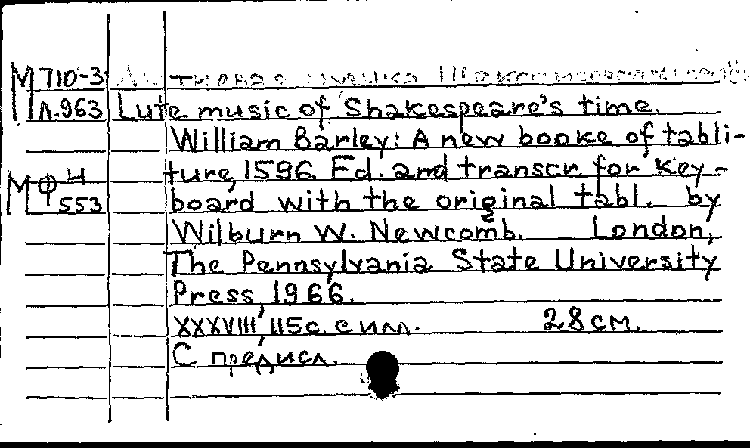 М 710-3
Л.963 Lute music of Shakespeare's time.
William Barley: A new booke of tabli-
ture, 1596. Ed. and transcr. for key-
МФ 4 553 board with the original tabl. by
Wilburn W. Newcomb. London,
The Pennsylvania State University
Press, 1966.
XXXVIII, 115 с. с илл. 28 см.
С предисл.